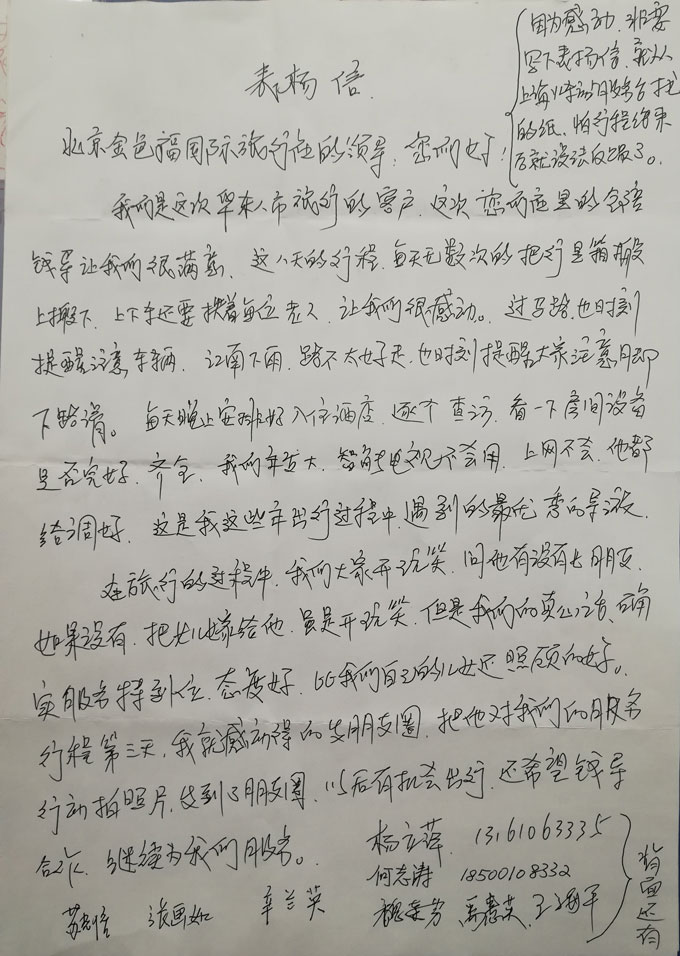 表杨信.
因为感动，非要
写下表扬信，就从
上海火车站服务台找
的纸，怕行程结束
后就没法反馈了。
北京金色福国际旅行社的领导，您们好！
我们是这次华东八市旅行的客户，这次您们社里的全陪
钱导让我们很满意，这八天的行程，每天无数次的把行里箱搬
上搬下，上下车还要扶着每位老人，让我们很感动。过马路，也时刻
提醒注意车辆，江南下雨，路不太好走，也时刻提醒大家注意月却
下路滑。每天晚上安排好入住酒店，逐个查访，看一下房间设备
是否完好，齐全，我们年迈大，智能电视不会用，上网不会，他都
给调好，这是我这些年出行过程中，遇到的最优秀的导游，
在旅行的过程中，我们大家开玩笑，问他有没有女朋友，
如果没有，把女儿嫁给他，虽是开玩笑，但是我们的真心话，确
实服务特到位，态度好，比我们自己的儿女还照顾的好。
行程第三天，我就感动得的发朋友圈，把他对我们的服务
行动拍照片，发到了朋友圈，以后有机会出行，还希望钱导
合作，继续为我们服务。
13161063335
何志涛 18500108332
辛兰英
背面还有